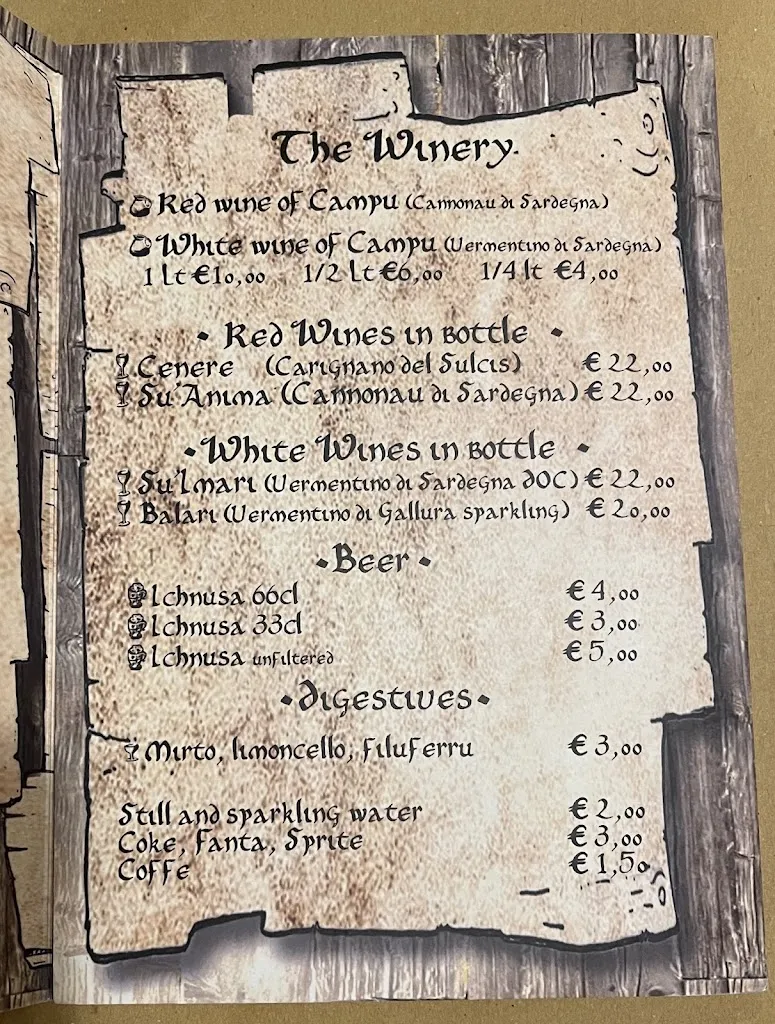 The Winery
Red wine of Campu (Cannonau di Sardegna)
White wine of Campu (Vermentino di Sardegna)
1 Lt €10,00 1/2 Lt €6,00 1/4 lt €4,00
• Red Wines in bottle •
Cenere (Carignano del Sulcis) € 22,00
Su'Anima (Cannonau di Sardegna) € 22,00
• White Wines in bottle •
Su'Imari (Vermentino di Sardegna DOC) € 22,00
Balari (Vermentino di Gallura sparkling) € 20,00
• Beer •
Ichnusa 66cl € 4,00
Ichnusa 33cl € 3,00
Ichnusa unfiltered € 5,00
• Digestives •
Mirto, limoncello, Filuferru € 3,00
Still and sparkling water € 2,00
Coke, Fanta, Sprite € 3,00
Coffe € 1,50